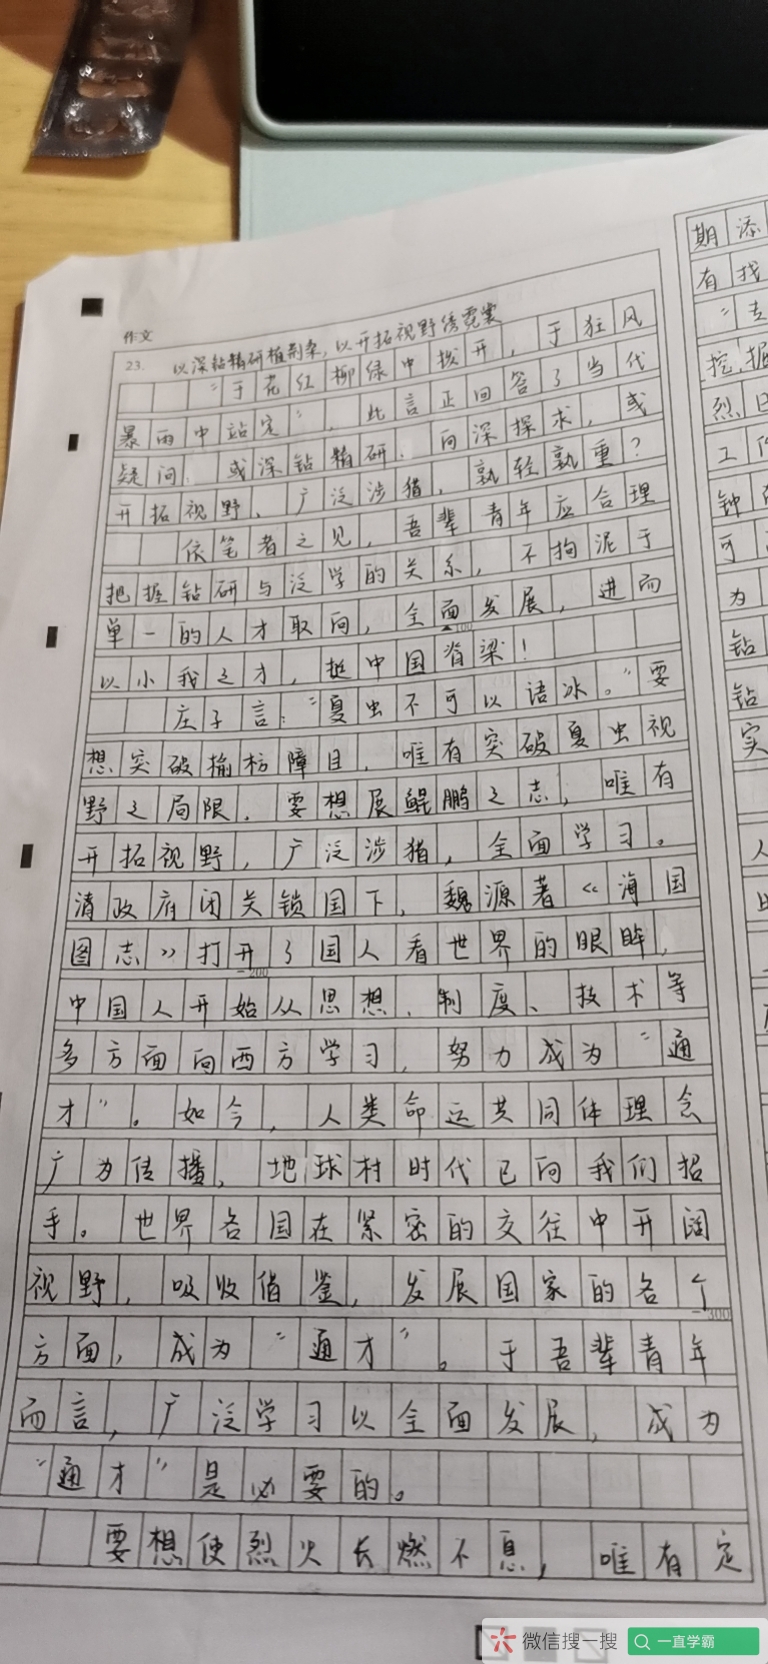 作文
23. 以深钻精研植荆桑，以开拓视野绣霓裳
“于花红柳绿中拨开，于狂风
暴雨中站定”，此言正回答了当代
疑问，或深钻精研、向深探求，或
开拓视野、广泛涉猎，孰轻孰重？
依笔者之见，吾辈青年应合理
把握钻研与泛学的关系，不拘泥于
单一的人才取向，全面发展，进而
以小我之才，挺中国脊梁！
庄子言：“夏虫不可以语冰。”要
想突破榆枋障目，唯有突破夏虫视
野之局限，要想展鲲鹏之志，唯有
开拓视野，广泛涉猎，全面学习。
清政府闭关锁国下，魏源著《海国
图志》打开了国人看世界的眼眸，
-200
中国人开始从思想、制度、技术等
多方面向西方学习，努力成为“通
才”。如今，人类命运共同体理念
广为传播，地球村时代已向我们招
手。世界各国在紧密的交往中开阔
视野，吸收借鉴，发展国家的各个
-300
方面，成为“通才”。于吾辈青年
而言，广泛学习以全面发展，成为
“通才”是必要的。
要想使烈火长燃不息，唯有定
期添
有找
“专
挖掘
烈日
工作
钟
可
为
钻
钻
实
人
微信搜一搜
一直学霸